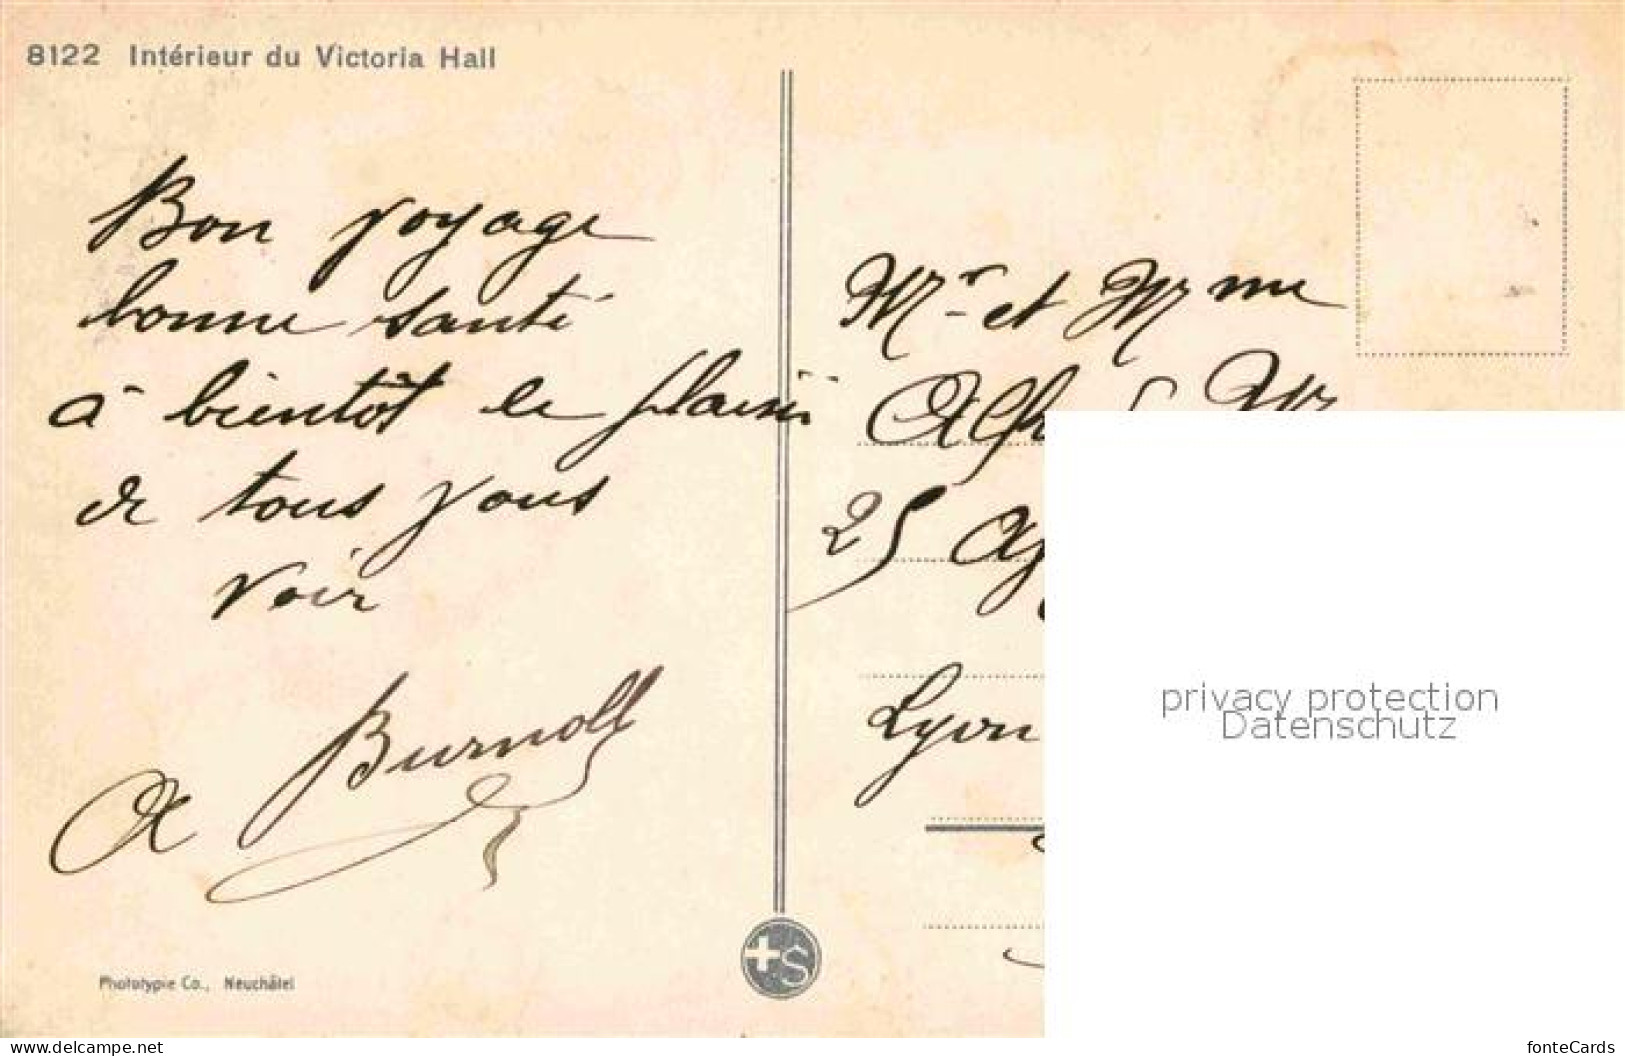 8122 Intérieur du Victoria Hall
Bon voyage
bonne santé
à bientôt le plaisir
de tous vous
voir
A Burnoll
Phototypie Co., Neuchâtel
+S
Mr et Mme
25
Lyon
privacy protection
Datenschutz
www.delcampe.net
fonteCards